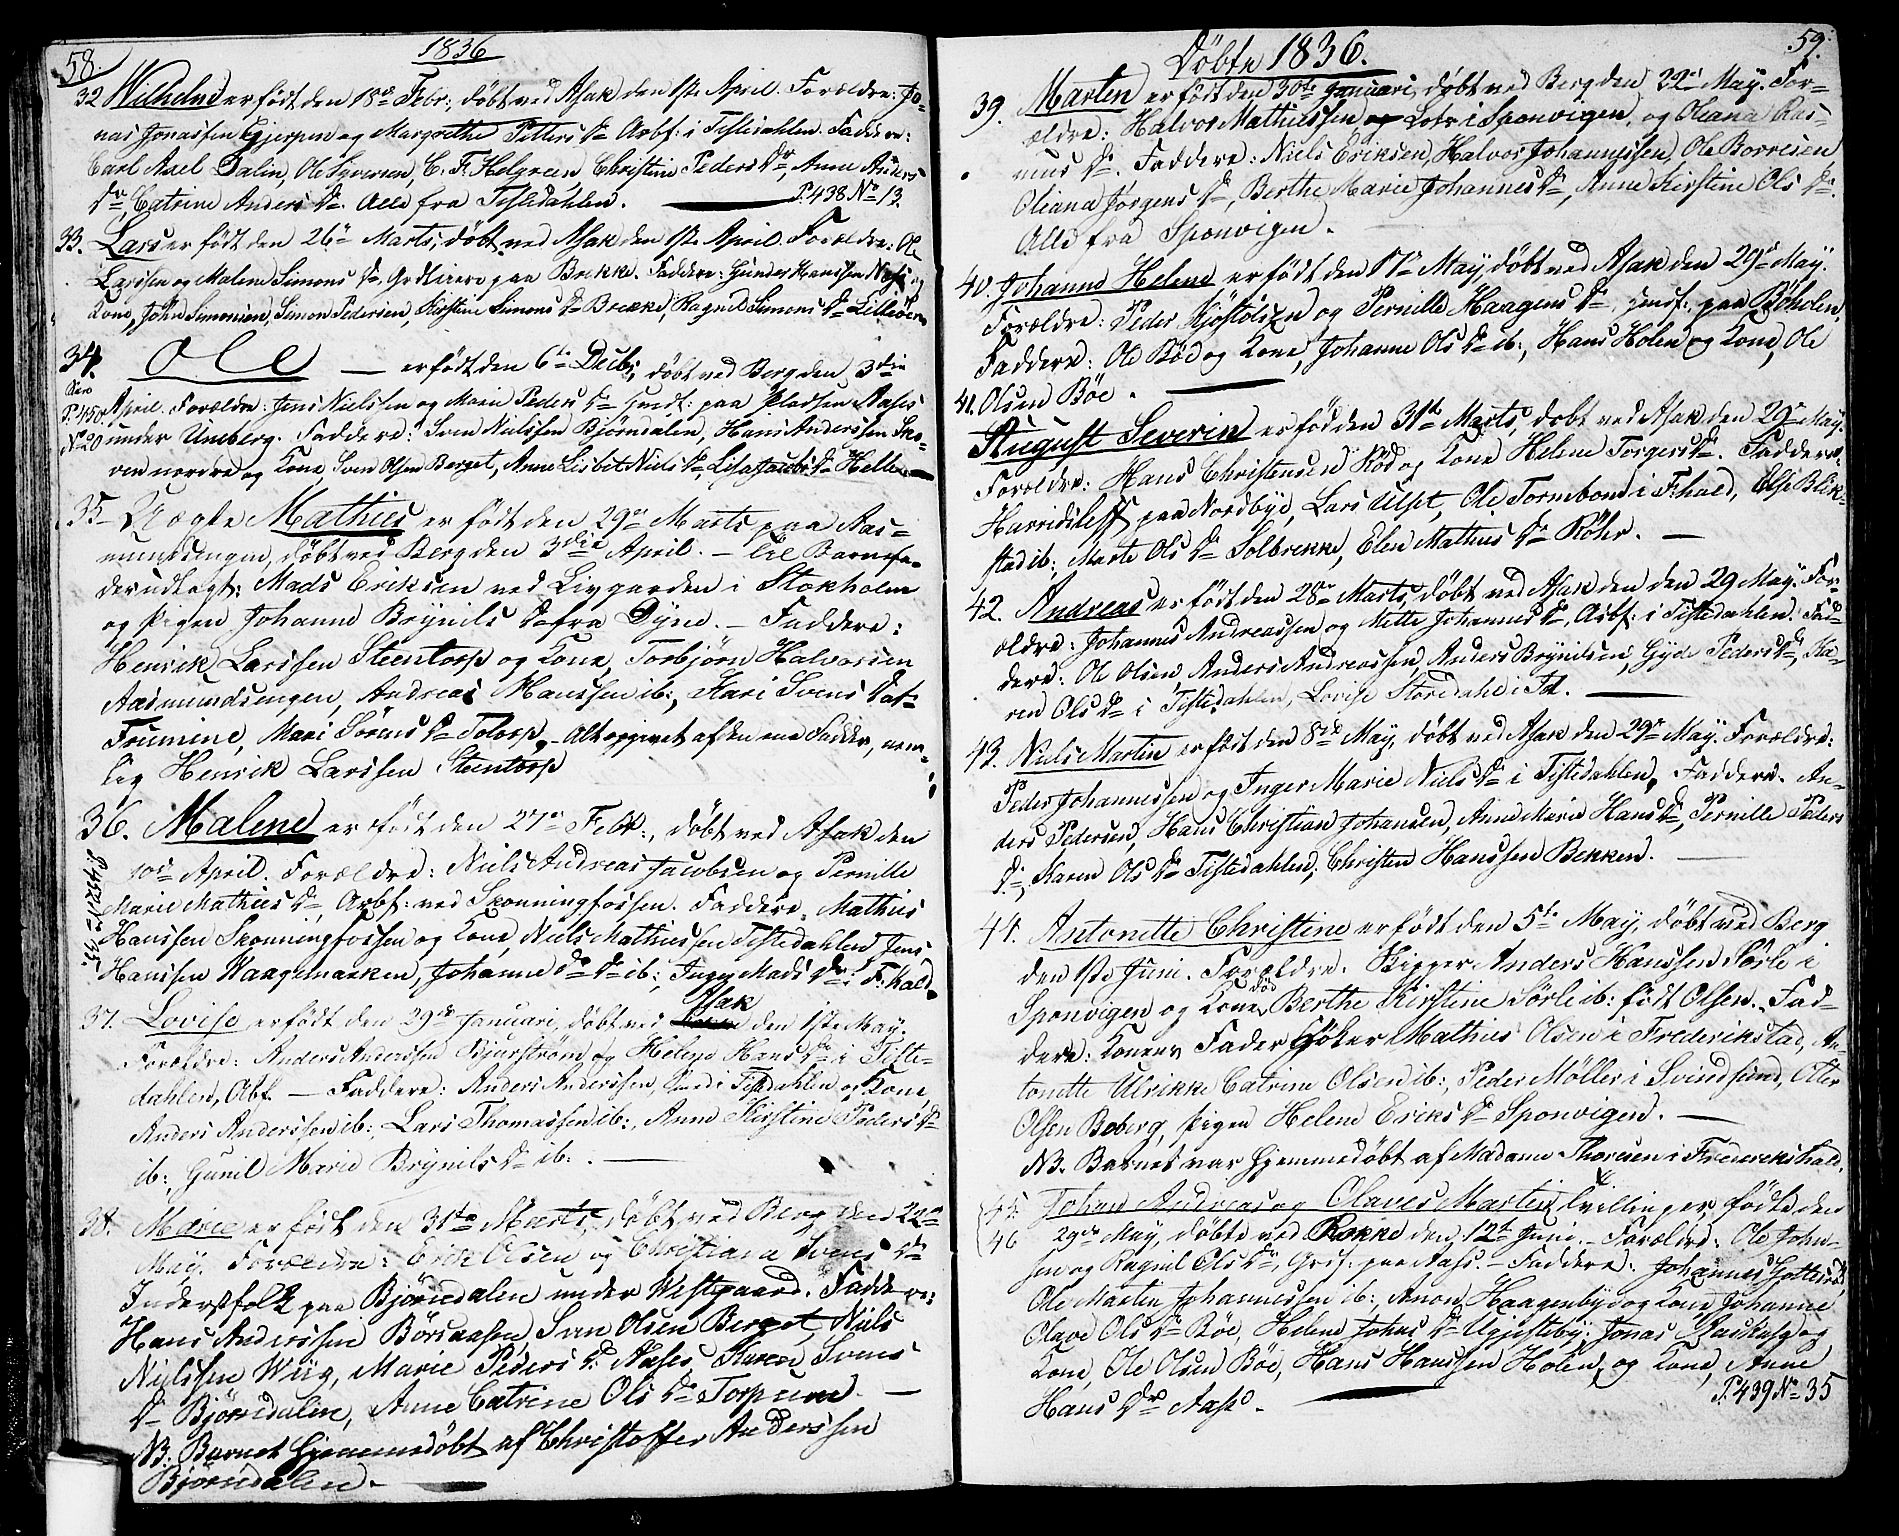 58.
1836
32 Wilhelm er født den 18de Febr:, døbt ved Asak den 1ste April. Forældre: Jo-
nas Jonassen Gjerpen og Margrethe Petters Dr Arbf: i Tistedahlen. Faddere:
Carl Axel Dalin, Ole Syversen, C. F. Helgreen Christine Peders Dr, Anne Anders
Dr, Catrine Anders Dr. Alle fra Tistedahlen. P.438 No 13.
33. Lars er født den 26de Marts, døbt ved Asak den 1ste April. Forældre: Ole
Larssen og Malene Simons Dr, paa Brekke. Faddere: Gunder Hanssen og
Kone, John Simonsen, Simon Pedersen, Kirstine Simons Dr Brekke, Ragnil Simons Dr
34. Ole — er født den 6te Decbr, døbt ved Berg den 3die
P.450 April. Forældre: Jens Nielssen og Marie Peders Dr paa Pladsen Aases
No 20 under Uneberg. Faddere: Sven Nielssen Bjørndalen, Hans Anderssen Sko-
ven nordre og Kone, Sven Olsen Berget, Anne Lisbet Niels Dr, Lisa Jacobs Dr Hellen
35. Uægte Mathias er født den 29de Marts paa Aas-
mundsengen, døbt ved Berg den 3die April. — Til Barnefa-
der udlagt: Mads Eriksen ved Livgarden i Stokholm
og Pigen Johanne Brynils D fra Dyne. — Faddere:
Henrik Larssen Steentorp og Kone, Torbjørn Halvorsen
Aasmundsengen, Andreas Hanssen ib:, Kari Svens Dat:
Marie Sørens Dr Totorp, - Alt opgivet af den ene Fadder, nem-
lig Henrik Larssen Steentorp
36. Malene er født den 27de Febr:, døbt ved Asak den
10de April. Forældre: Niels Andreas Jacobsen og Pernille
Marie Mathias Dr, Arbf: ved Skonningfossen. Faddere: Mathias
Hanssen Skonningfossen og Kone, Niels Mathiassen Tistedahlen, Jens
Hanssen Haagemarken, Johanne Dr ib:, Inger Mads Dr i F:hald.
37. Lovise er født den 29de Januari, døbt ved Asak den 1ste May.
Forældre: Anders Anderssen Bjurstrøm og Helene Hans Dr i Tiste-
dahlen, Abf. — Faddere: Anders Anderssen, i Tistedahlen og Kone,
Anders Anderssen ib:, Lars Thomassen ib:, Anne Kirstine Peders Dr
ib:, Gunil Marie Brynils Dr ib:. —
38. Marie er født den 31te Marts, døbt ved Berg den 22de
May. Forældre: Erik Olsen og Christiana Svens Dr
Inderstfolk paa Bjørndalen under Westgaard. Faddere:
Hans Anderssen Børsaasen, Sven Olsen Berget, Niels
Nielssen Wiig, Marie Peders Dr Aases, Karen Svens
Dr Bjørndalen, Anne Catrine Ols Dr Torpum. —
NB. Barnet hjemmedøbt af Christoffer Anderssen
Bjørndalen. —
Døbte 1836.
59.
39. Marten er født den 30te Januari, døbt ved Berg den 22de May. For-
ældre: Halvor Mathiassen Lots i Sponvigen, og Oliana Ras-
mus Dr. Faddere: Niels Eriksen, Halvor Johannessen, Ole Borresen
Oliana Jørgens Dr, Berthe Marie Johannes Dr, Anne Kirstine Ols Dr
Alle fra Sponvigen.
40. Johanne Helene er født den 11te May døbt ved Asak den 29de May.
Forældre: Peder Kjøstolsen og Pernille Haagens Dr, paa Bøholen,
Faddere: Ole Bøe og Kone, Johanne Ols Dr ib:, Hans Holen og Kone, Ole
Olsen Bøe. —
41. August Severin er fød den 31te Marts, døbt ved Asak den 29de May.
Forældre: Hans Christensen Rød og Kone Helene Torgers Dr. Faddere:
Harridsleff paa Nordbye, Lars Ulset, Ole Tormbom i F:hald, Else Blik-
stad ib:, Marte Ols Dr Solbrekke, Elen Mathias Dr Røhr. —
42. Andreas er født den 28de Marts, døbt ved Asak den den 29 May. For-
ældre: Johannes Andreassen og Mette Johannes Dr, Arbf: i Tistedahlen. Fad-
dere: Ole Olsen, Anders Andreassen, Anders Brynildsen, Gyde Peders Dr, Ka-
ren Ols Dr i Tistedahlen, Lovise Storedahl i Id. —
43. Niels Martin er født den 8de May, døbt ved Asak den 29de May. Forældre:
Peder Johannessen og Inger Marie Niels Dr i Tistedahlen, Faddere. An-
ders Pedersen, Hans Christian Johansen, Anne Marie Hans Dr, Pernille Peders
Dr, Karen Ols Dr Tistedahlen, Christen Hanssen Bekken. —
44. Antonette Christine er født den 5te May, døbt ved Berg
den 1ste Juni. Forældre. Skipper Anders Hanssen Sørle i
Sponvigen og Kone død Berthe Kirstine Sørle ib: født Olsen. Fad-
dere: Konens Fader Høker Mathias Olsen i Frederikstad, An-
tonette Ulrikke Catrine Olsen ib:, Peder Møller i Svindsund, Ole
Olsen Boberg, Pigen Helene Eriks Dr Sponvigen. —
NB. Barnet var hjemmedøbt af Madame Thoresen i Fredrikshald.
45. Johan Andreas og Olaves Martin tvillinger, fødte den
46 29de May, døbte ved Rokke den 12te Juni. — Forældre: Ole John-
sen og Ragnil Ols Dr, paa Aase. — Faddere: Johannes
Ole Martin Johannessen ib:, Anon Haagenbye og Kone Johanne
Olave Ols Dr Bøe, Helene Johns Dr Ugjesteby, Jonas og
Kone, Ole Olsen Bøe, Hans Hanssen Holen, og Kone, Anne
Hans Dr Aase. — P.439 No 35